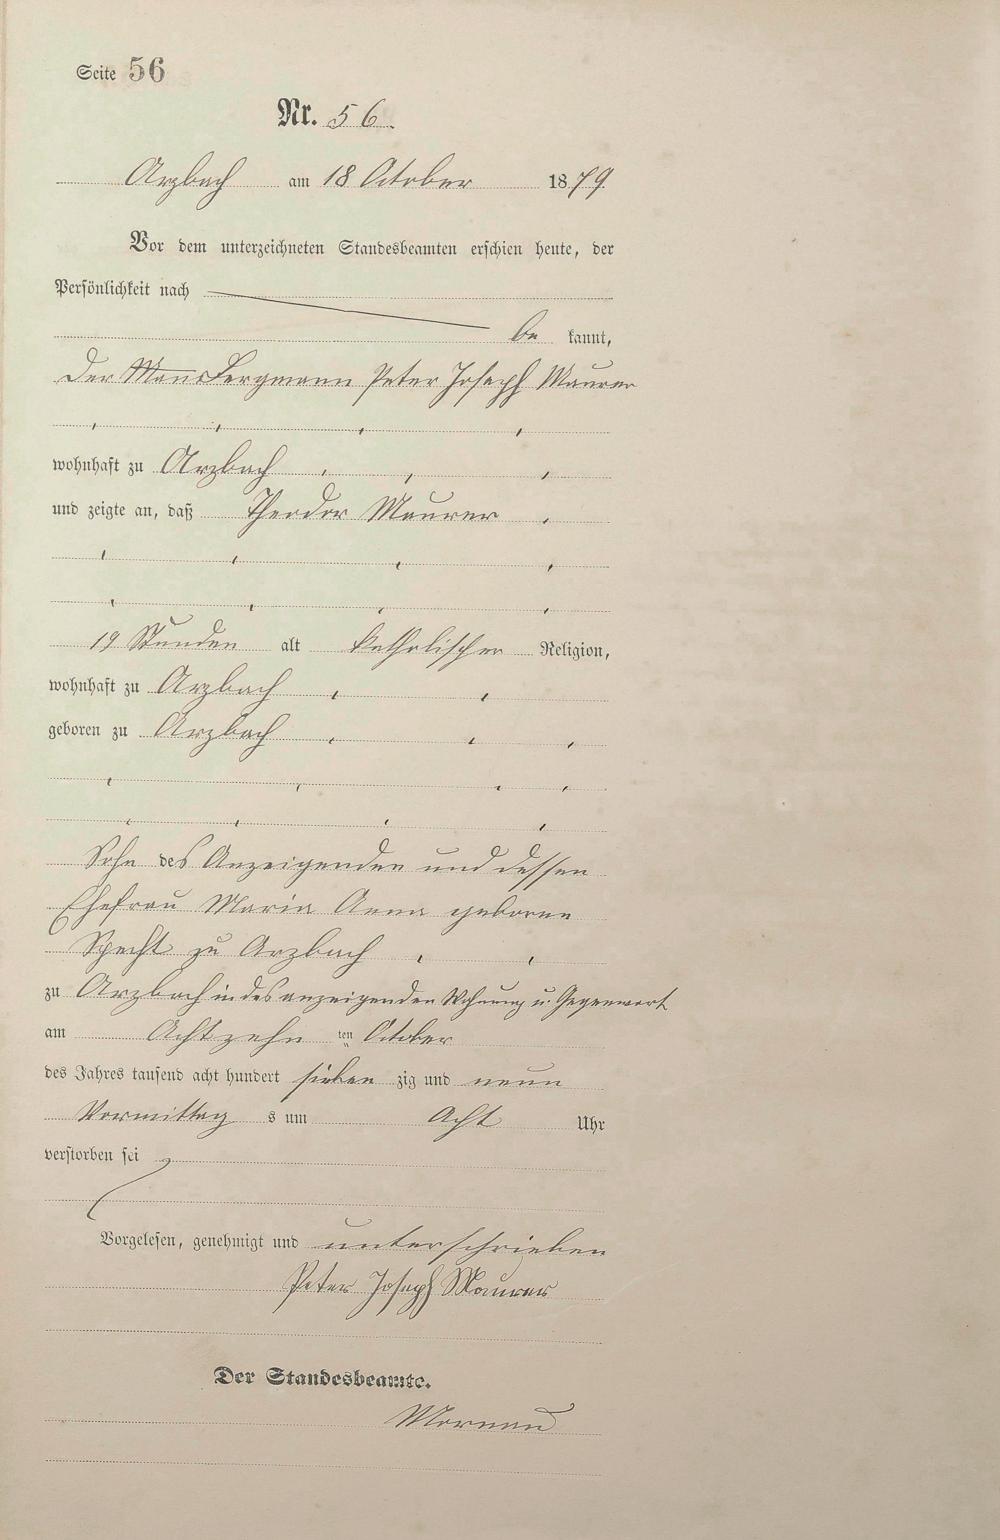 Seite 56
Nr. 56.
Arzbach am 18 October 1879.
Vor dem unterzeichneten Standesbeamten erschien heute, der
Persönlichkeit nach
be kannt,
der Bergmann Peter Joseph Maurer
wohnhaft zu Arzbach
und zeigte an, daß Theodor Maurer
19 Stunden alt katholischer Religion,
wohnhaft zu Arzbach
geboren zu Arzbach
Sohn des Anzeigenden und dessen
Ehefrau Maria Anna geborne
Specht zu Arzbach
zu Arzbach in des anzeigenden Wohnung u. Gegenwart
am Achtzehn ten October
des Jahres tausend acht hundert sieben zig und neun
Vormittag s um Acht Uhr
verstorben sei
Vorgelesen, genehmigt und unterschrieben
Peter Joseph Maurer
Der Standesbeamte.